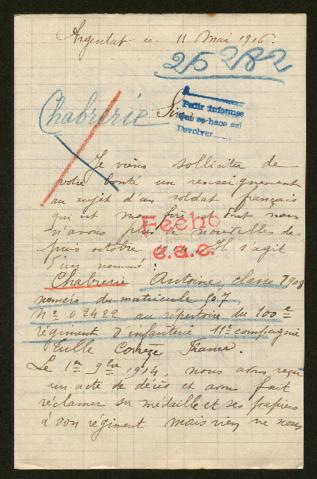 Argentat le 11 Mai 1916.
25282
Chabrerie
Sire
Pedir informes
que se hace así
Devolver
Je viens solliciter de
votre bonté un renseignement
au sujet d'un soldat français
qui est mon frère et dont nous
n'avons plus de nouvelles de-
puis octobre Il s'agit
d'un nommé :
Fecho
e.a.e.
Chabrerie Antoine, classe 1908
numéro du matricule
N° 02422 au répertoire du 100e
régiment d'infanterie 11e compagnie
Tulle Corrèze France.
Le 1er 9bre 1914 nous avons reçu
un acte de décès et avons fait
réclamer sa médaille et ses papiers
à son régiment mais rien ne nous